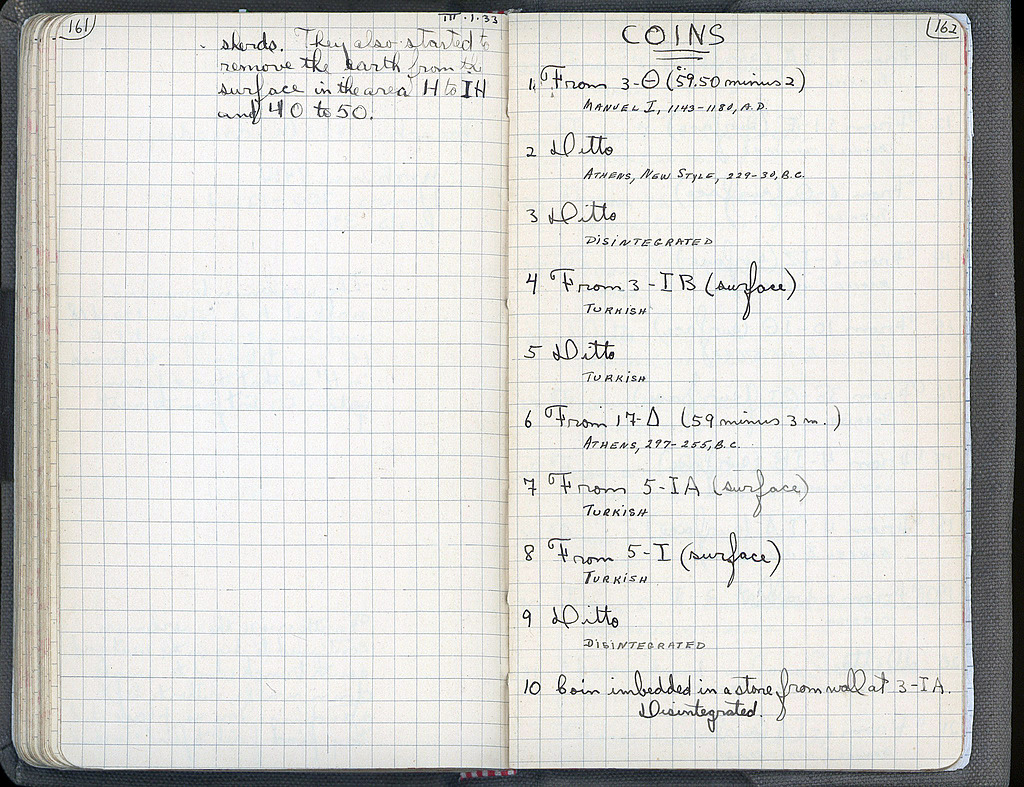 161
III·1·33
sherds. They also started to
remove the earth from the
surface in the area H to IH
and 40 to 50.
162
COINS
1. From 3-Θ (59.50 minus 2)
MANUEL I, 1143-1180, A.D.
2 Ditto
ATHENS, NEW STYLE, 229-30, B.C.
3 Ditto
DISINTEGRATED
4 From 3-IB (surface)
TURKISH
5 Ditto
TURKISH
6 From 17-Δ (59 minus 3 m.)
ATHENS, 297-255, B.C.
7 From 5-IA (surface)
TURKISH
8 From 5-I (surface)
TURKISH
9 Ditto
DISINTEGRATED
10 Coin imbedded in a stone from wall at 3-IA.
Disintegrated.